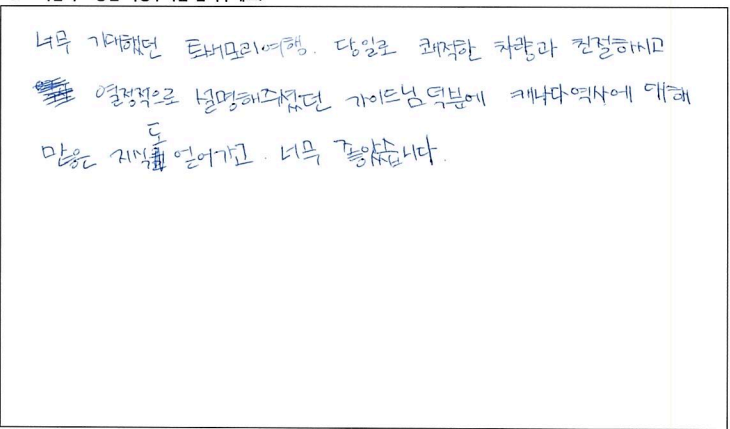 너무 기대했던 토버모리여행. 당일로 쾌적한 차량과 친절하시고
열정적으로 설명해주셨던 가이드님 덕분에 캐나다역사에 대해
많은 지식도 얻어가고. 너무 좋았습니다.